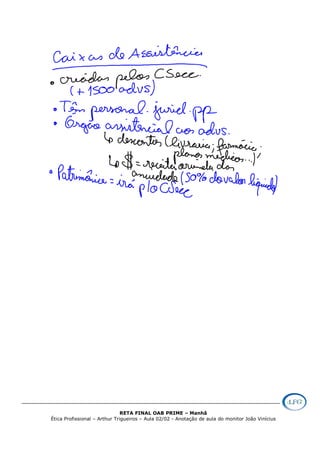 Caixas de Assistência
• criadas pelos CSecc.
(+ 1500 advs)
• Têm personal. juríd. pp
• Órgão assistencial aos advs.
↳ descontos (livraria; farmácia;
planos médicos...)
↳ $ = receita arrecada das
anuidades (50% do valor líquido)
• Patrimônio = irá p/ o CSecc
RETA FINAL OAB PRIME – Manhã
Ética Profissional – Arthur Trigueiros – Aula 02/02 - Anotação de aula do monitor João Vinícius